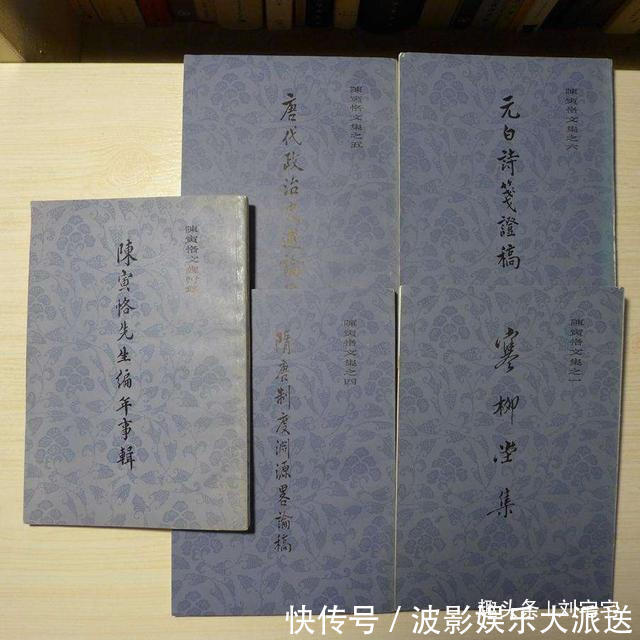 陳寅恪文集之五
唐代政治史述論
陳寅恪文集之六
元白詩箋證稿
陳寅恪文集附錄
陳寅恪先生編年事輯
陳寅恪文集之四
隋唐制度淵源畧論稿
陳寅恪文集之一
寒柳堂集
趣头条上刘宝宝
快传号／波影娱乐大派送